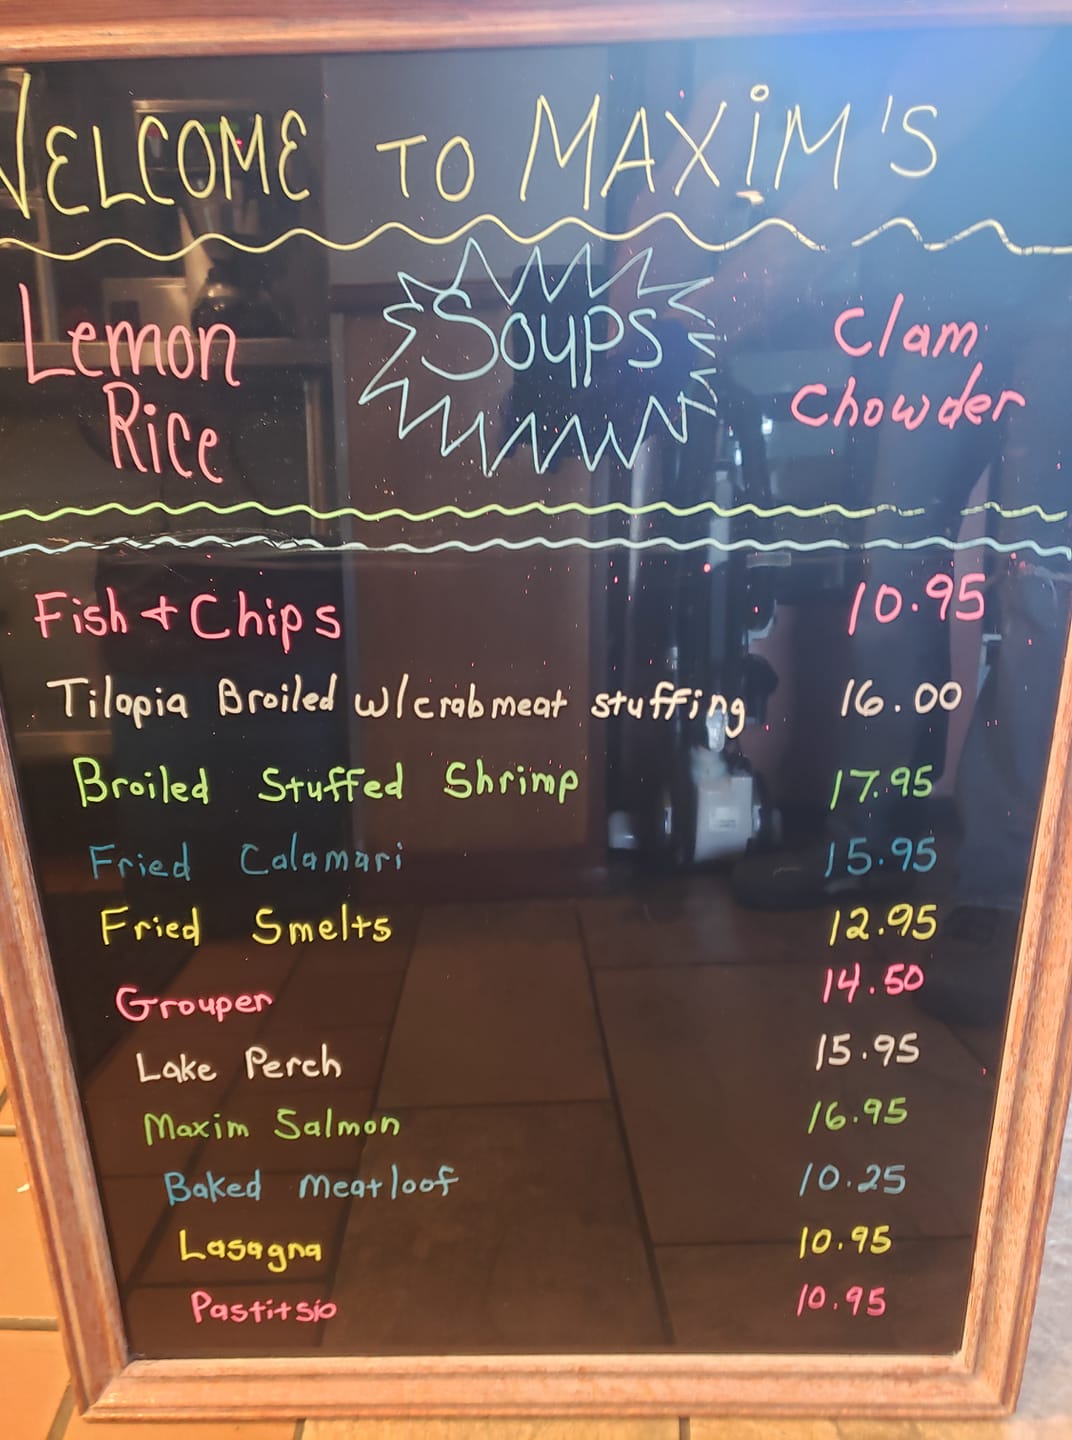 WELCOME TO MAXiM'S
Lemon Rice
Soups
Clam Chowder
Fish + Chips 10.95
Tilapia Broiled w/crabmeat stuffing 16.00
Broiled Stuffed Shrimp 17.95
Fried Calamari 15.95
Fried Smelts 12.95
Grouper 14.50
Lake Perch 15.95
Maxim Salmon 16.95
Baked Meatloaf 10.25
Lasagna 10.95
Pastitsio 10.95